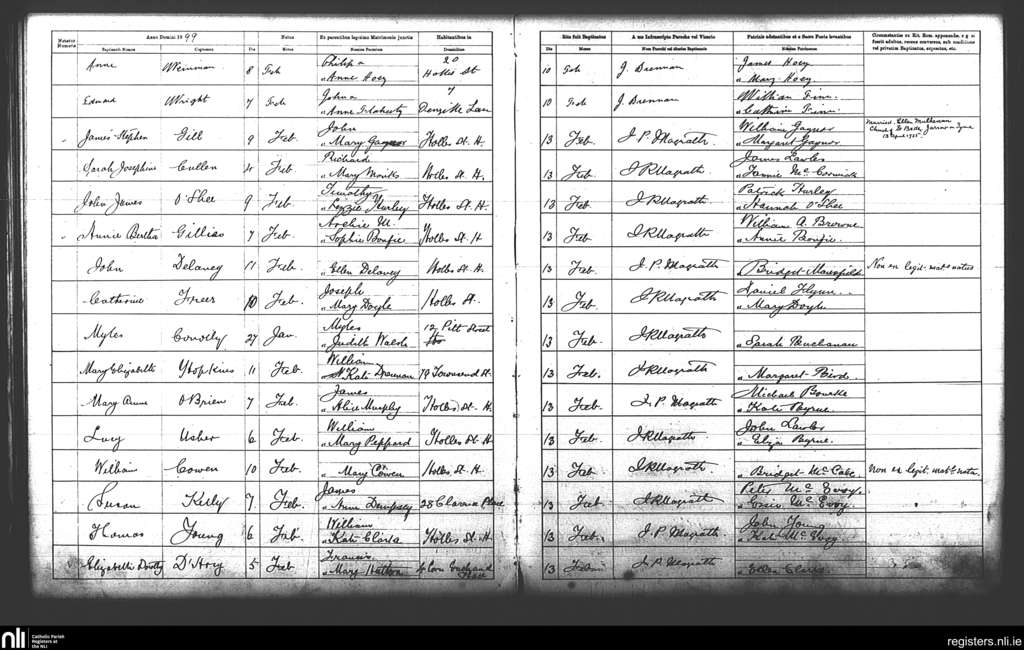 Anno Domini 1899
Natus
Ex parentibus legitimo Matrimonio junctis
Habitantibus in
Rite fuit Baptizatus
A me Infrascripto Parocho vel Vicario
Patrinis adstantibus et a Sacro Fonte levantibus
Baptizati Nomen
Cognomen
Die
Mense
Nomina Parentum
Domicilium
Die
Mense
Nomina Patrinorum
Anne Weinman 8 Feb Philip & Anne Hoey 20 Holles St 10 Feb J. Brennan James Hoey " Mary Hoey
Edward Wright 7 Feb John & " Anne Flaherty 7 Denzille Lane 10 Feb J. Brennan William Finn " Catherine Finn
James Stephen Gill 9 Feb John " Mary Gaynor Holles St. H. 13 Feb J. P. Magrath William Gaynor " Margaret Gaynor
Married Ellen
Sarah Josephine Cullen 4 Feb Richard " Mary Monks Holles St. H. 13 Feb J P Magrath James Lawler " Fannie Mc Cormick
John James O'Shee 9 Feb Timothy " Lizzie Hurley Holles St. H 13 Feb J P Magrath Patrick Hurley " Hannah O'Shee
Annie Bertha Gillies 7 Feb Archie M. " Sophie Bonfie Holles St. H 13 Feb J P Magrath William A. Browne " Annie Bonfie
John Delaney 11 Feb " Ellen Delaney Holles St. H. 13 Feb J. P. Magrath " Bridget Non ex legit. mat. natus
Catherine Freer 10 Feb Joseph " Mary Doyle Holles St. 13 Feb J P Magrath Daniel Flynn " Mary Doyle
Myles Conolly 27 Jan. Myles " Judith Walsh 12 Pitt Street 13 Feb. J P Magrath " Sarah Buchanan
Mary Elizabeth Hopkins 11 Feb William " Kate Drennan 79 Townsend St. 13 Feb. J P Magrath " Margaret Bird
Mary Anne O'Brien 7 Feb. James " Alice Murphy Holles St. H. 13 Feb. J. P. Magrath Michael Bourke " Kate Byrne
Lucy Usher 6 Feb. William " Mary Peppard Holles St. H 13 Feb. J P Magrath John Lawler " Eliza Byrne.
William Cowen 10 Feb. " Mary Cowen Holles St. H. 13 Feb J P Magrath " Bridget McCabe Non ex legit. mat. natus
Susan Kelly 7 Feb. James " Anne Dempsey 28 Clarence Place 13 Feb J P Magrath Peter Mc Evoy. " Essie Mc Evoy.
Thomas Young 6 Feb William " Kate Clarke Holles St. H. 13 Feb. J. P. Magrath John Young " Kate Mc Evoy
Elizabeth Dorothy D'Arcy 5 Feb Francis " Mary Hatton 13 Feb J. P. Magrath " Ellen Clarke
nli
Catholic Parish
Registers at
the NLI
registers.nli.ie